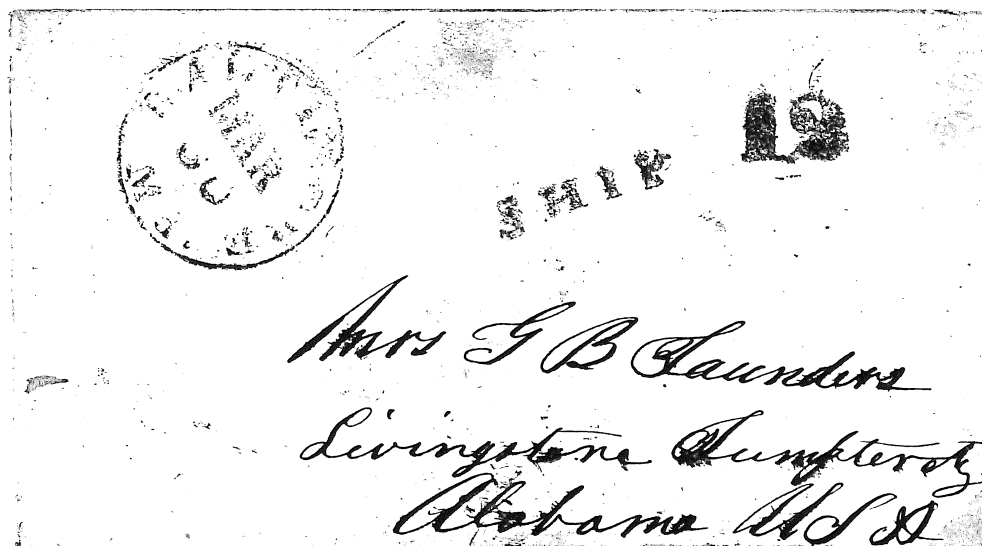 MAR
SHIP
12
Mrs G B Saunders
Livingstone Sumpter cty
Alabama U S A